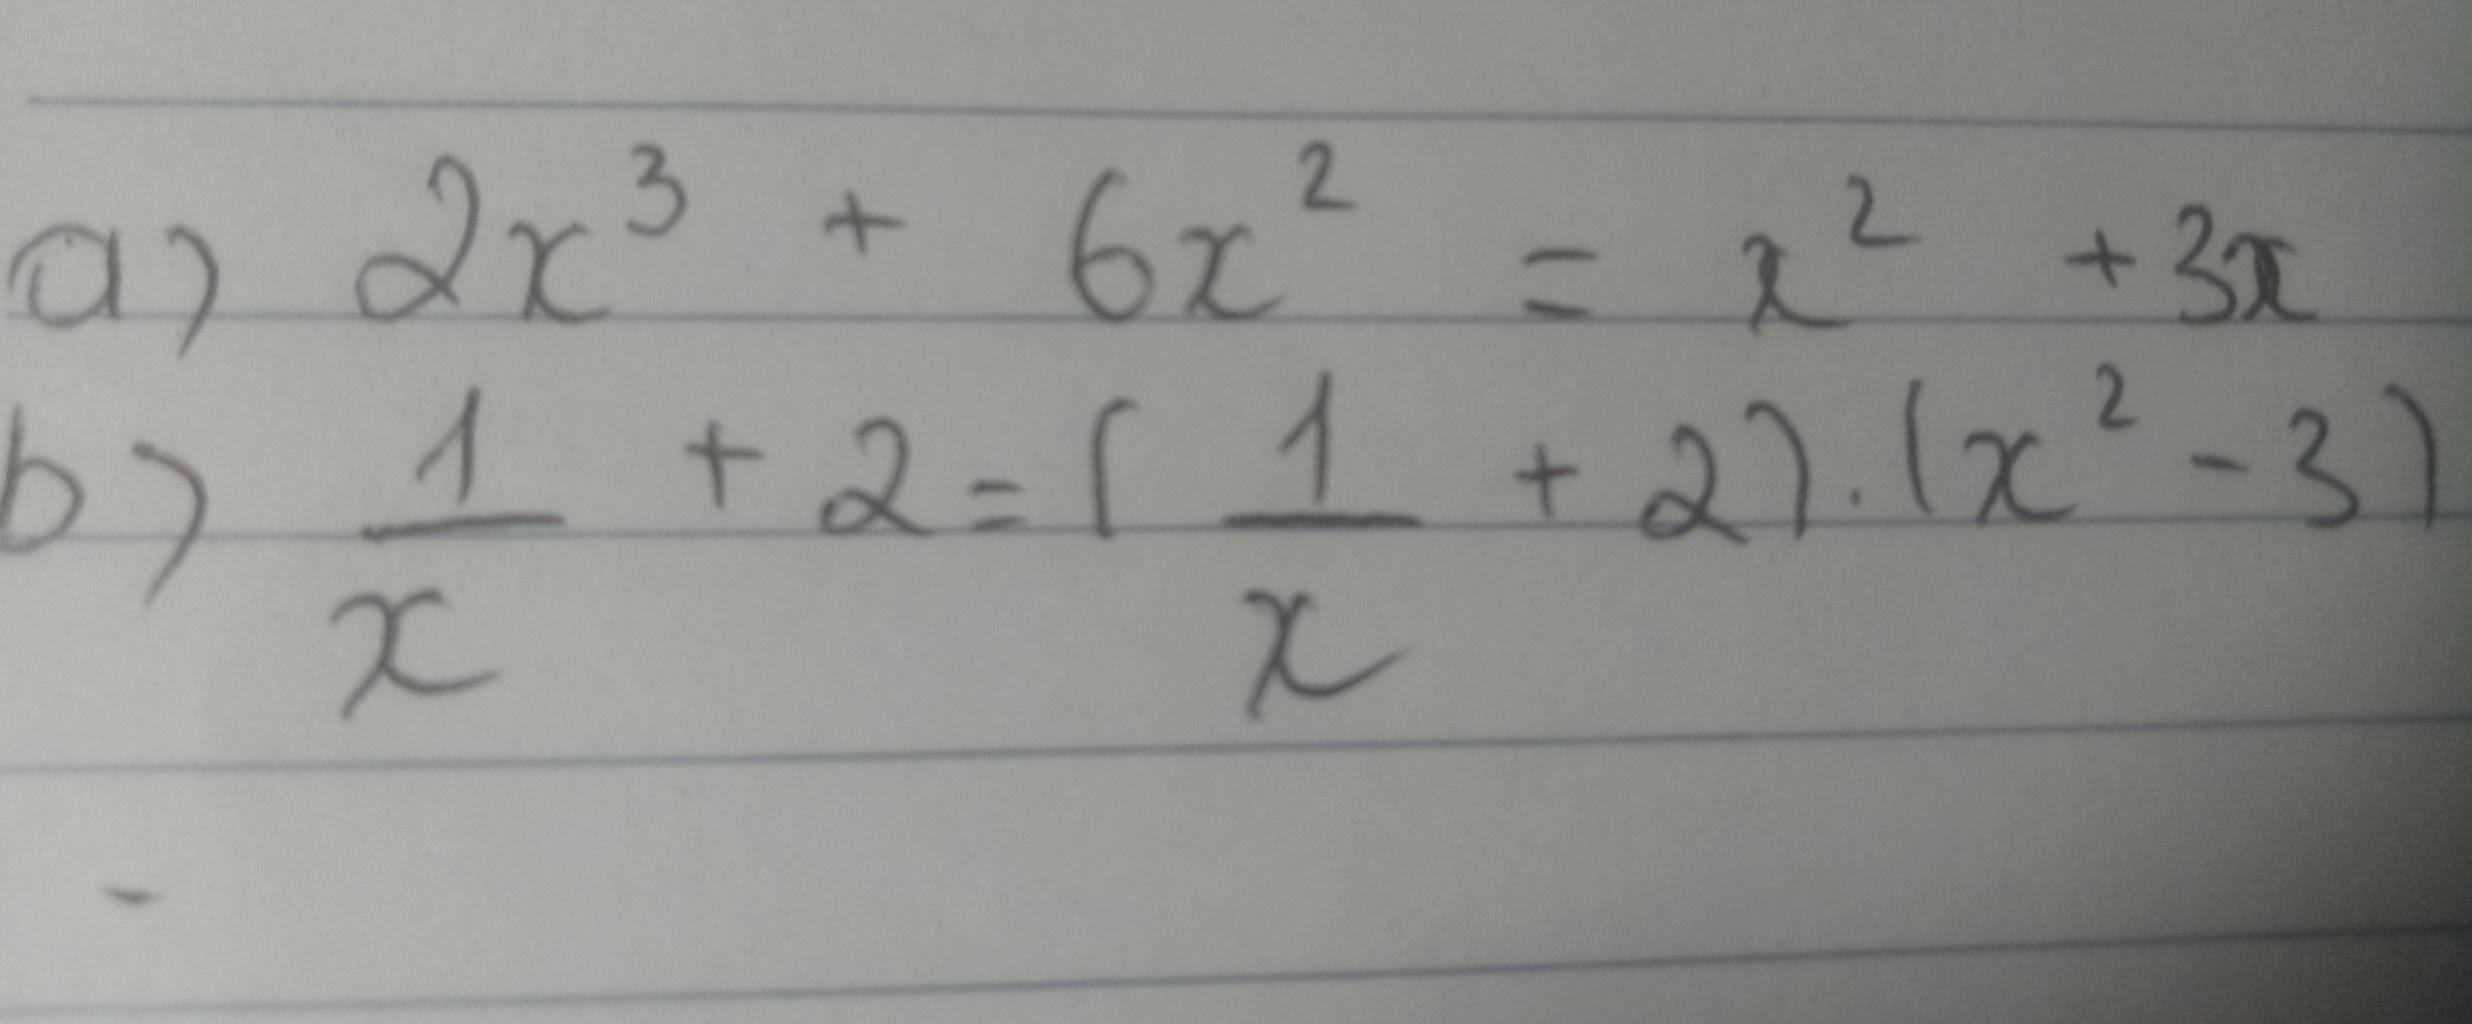 a) 2x³ + 6x² = x² + 3x
b) 1/x + 2 = (1/x + 2).(x² - 3)
-